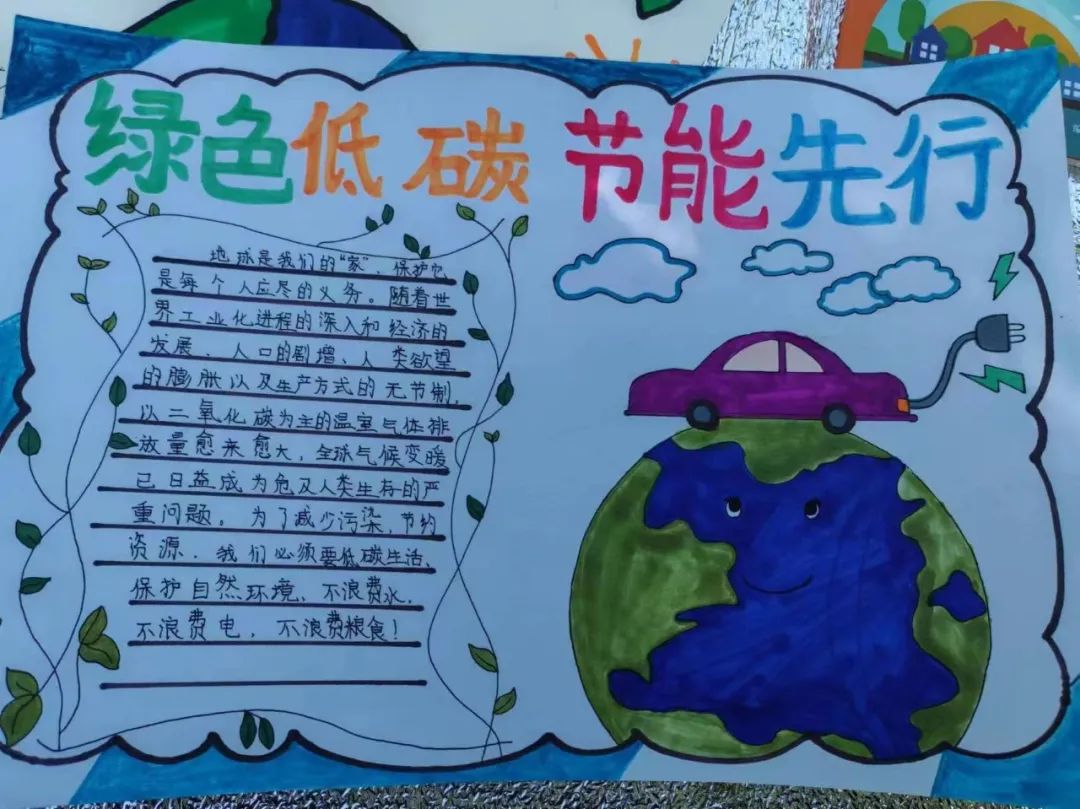 绿色低碳 节能先行
地球是我们的“家”，保护它
是每个人应尽的义务。随着世
界工业化进程的深入和经济的
发展、人口的剧增、人类欲望
的膨胀以及生产方式的无节制，
以二氧化碳为主的温室气体排
放量愈来愈大，全球气候变暖
已日益成为危及人类生存的严
重问题。为了减少污染，节约
资源，我们必须要低碳生活、
保护自然环境，不浪费水，
不浪费电，不浪费粮食！